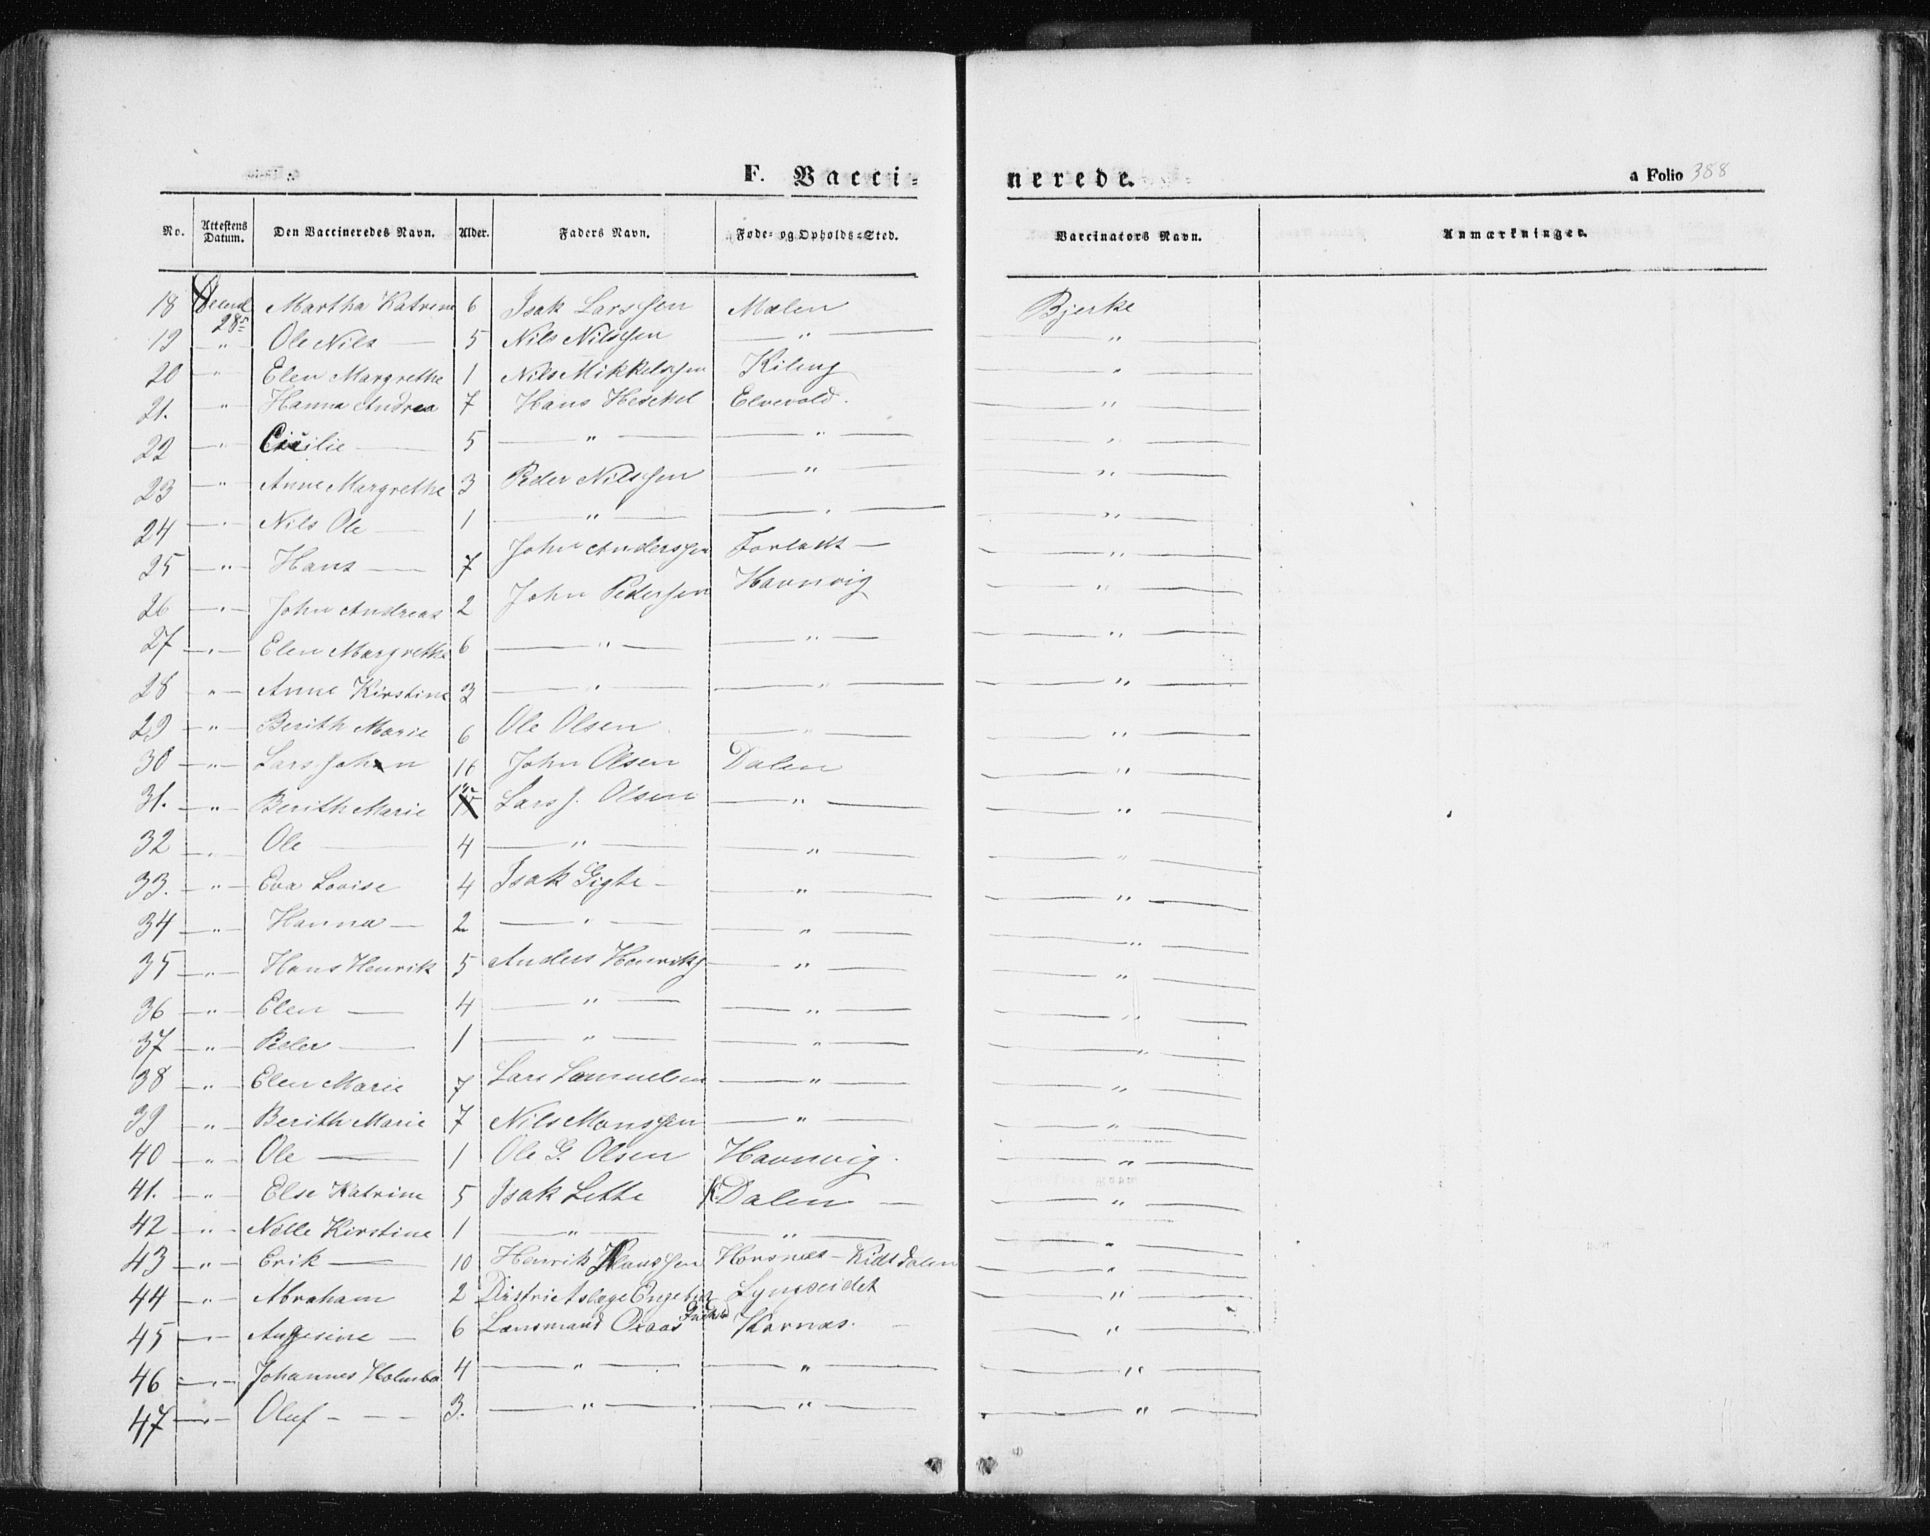 F. Vacci-nerede. a Folio 388
No. Attestens Datum. Den Vaccineredes Navn. Alder. Faders Navn. Føde- og Opholds-Sted. Vaccinators Navn. Anmærkninger.
18 28 Martha Katrine 6 Isak Larssen Mælen Bjerke
19 " Ole Nils — 5 Nils Nilssen — " — — " —
20 " Elen Margrethe 1 Nils Mikkelssen Kileng — " —
21. " Hanna Andrea 7 Hans Heskel Elvevold. — " —
22 " Cicilie — 5 — " — — " — — " —
23 " Anne Margrethe 3 Peder Nilssen — " — — " —
24 " Nils Ole — 1 — " — — " — — " —
25 " Hans — 7 John Anderssen Forladt — — " —
26 " John Andreas 2 John Pederssen Havnvig — " —
27 " Elen Margrethe 6 — " — — " — — " —
28 " Anne Kirstine 3 — " — — " — — " —
29 " Berith Marie 6 Ole Olsen — " — — " —
30 " Lars Johan 10 John Olsen Dalen — " —
31. " Berith Marie Lars J. Olsen — " — — " —
32 " Ole — 4 — " — — " — — " —
33. " Eva Lovise 4 Isak Gigte — — " — — " —
34 " Hanna — 2 — " — — " — — " —
35 " Hans Henrik 5 Anders Henriks — " — — " —
36 " Elen — 4 — " — — " — — " —
37 " Peder — 1 — " — — " — — " —
38 " Elen Marie 7 Lars Samuelsen — " — — " —
39 " Berith Marie 7 Nils Monssen — " — — " —
40 " Ole — 1 Ole G. Olsen Havnvig. — " —
41. " Else Katrine 5 Isak Lette K.Dalen — — " —
42 " Nille Kirstine 1 — " — — " — — " —
43 " Erik — 10 Henrik Hanssen Horsnes - Kidtdalen — " —
44 " Abraham 2 Districtslæge Lyngseidet — " —
45 " Angesine — 6 Lænsmand Oxaas Karnæs. — — " —
46 " Johannes Holmbo 4 — " — — " — — " —
47 " Oluf - — 3. — " — — " — — " —